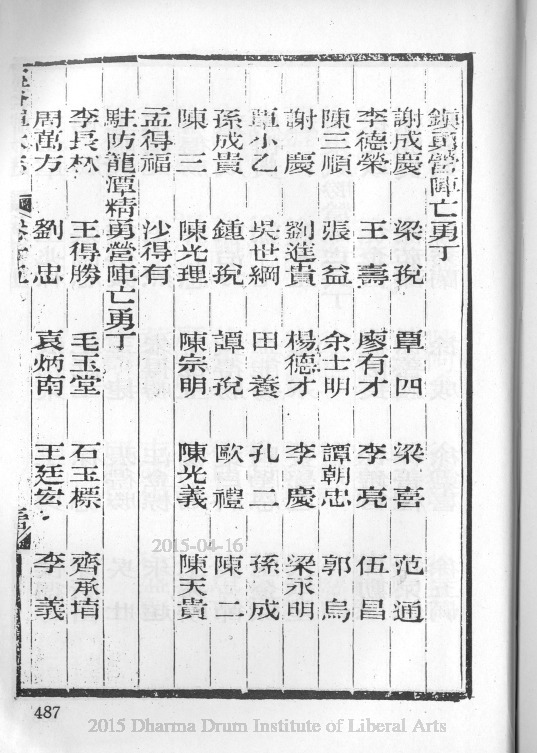 鎮勇營陣亡勇丁
謝成慶 梁拀 覃四 梁喜 范通
李德榮 王壽 廖有才 李亮 伍昌
陳三順 張益 余士明 譚朝忠 郭烏
謝慶 劉進貴 楊德才 李慶 梁永明
覃小乙 吳世綱 田養 孔二 孫成
孫成貴 鍾拀 譚拀 歐禮 陳二
陳三 陳光理 陳宗明 陳光義 陳天貴
孟得福 沙得有
駐防龍潭精勇營陣亡勇丁
李長林 王得勝 毛玉堂 石玉標 齊承堉
周萬方 劉忠 袁炳南 王廷宏 李義
487
2015-04-16
2015 Dharma Drum Institute of Liberal Arts